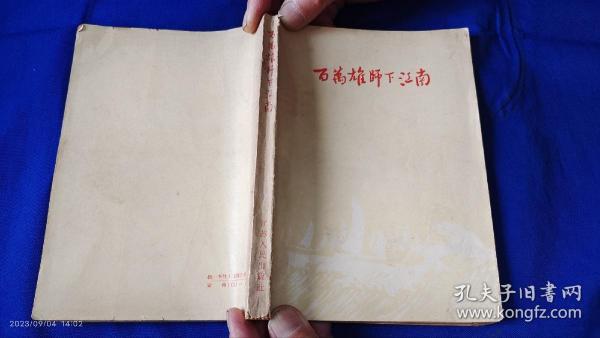 百萬雄師下江南
百萬雄師下江南
人民出版社
2023/09/04 14:02
孔夫子旧书网
www.kongfz.com